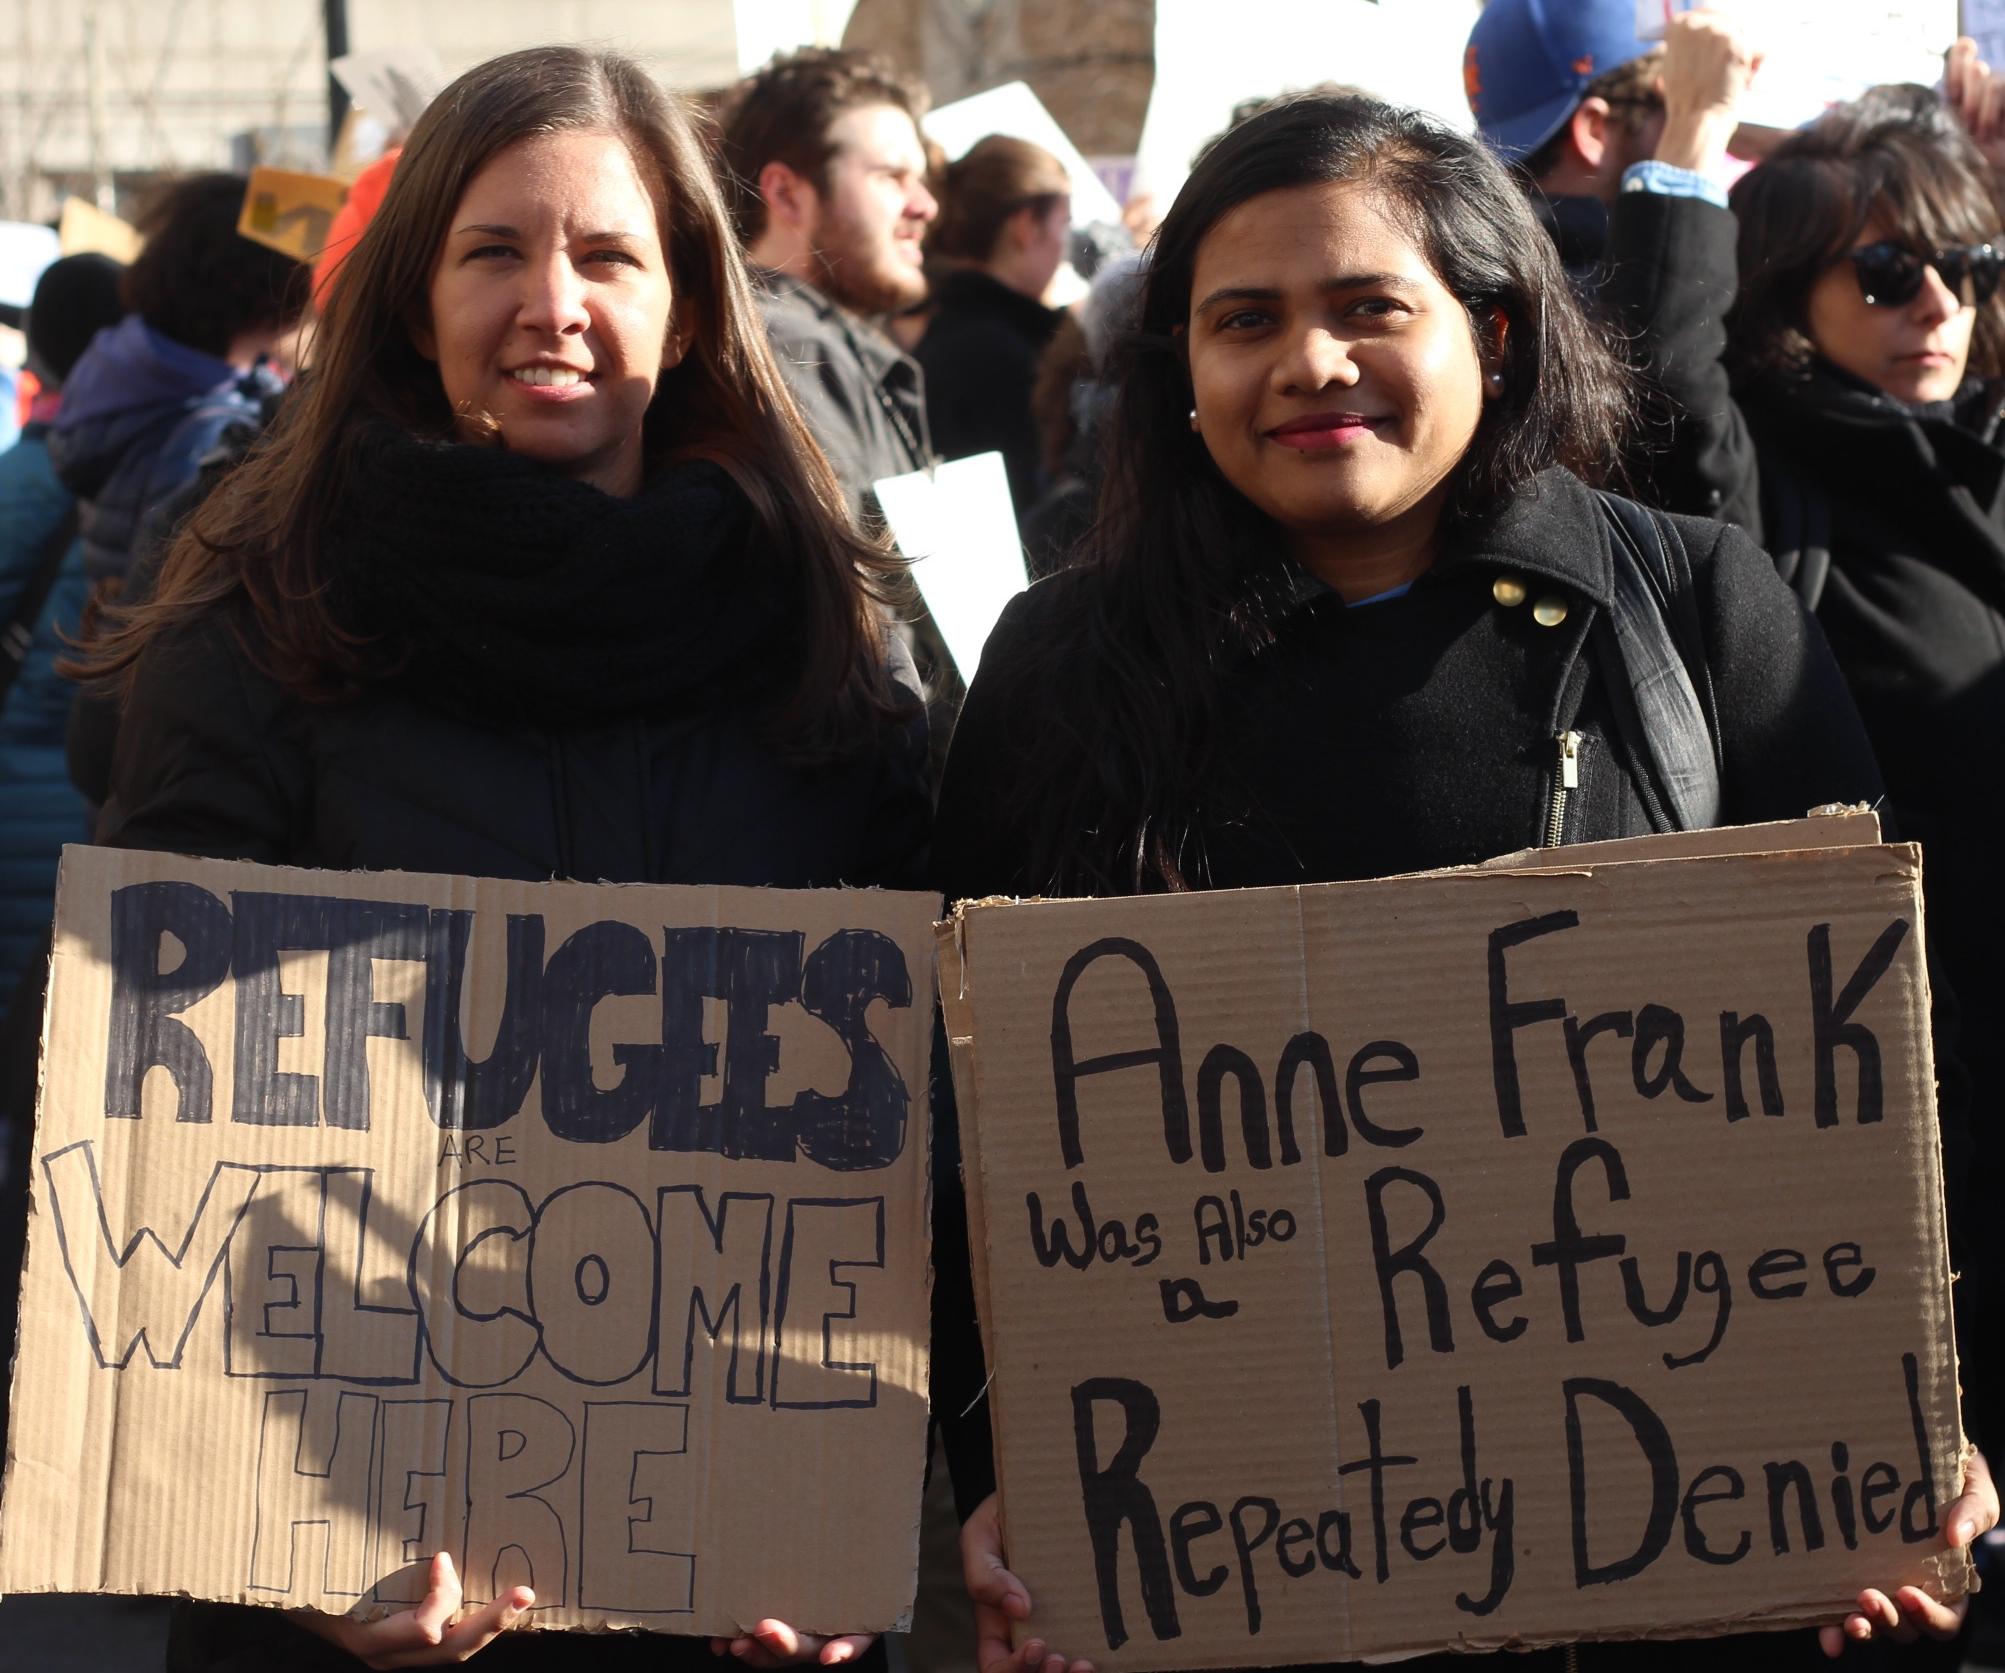 REFUGEES
ARE
WELCOME
HERE
Anne Frank
Was Also
a
Refugee
Repeatedy Denied